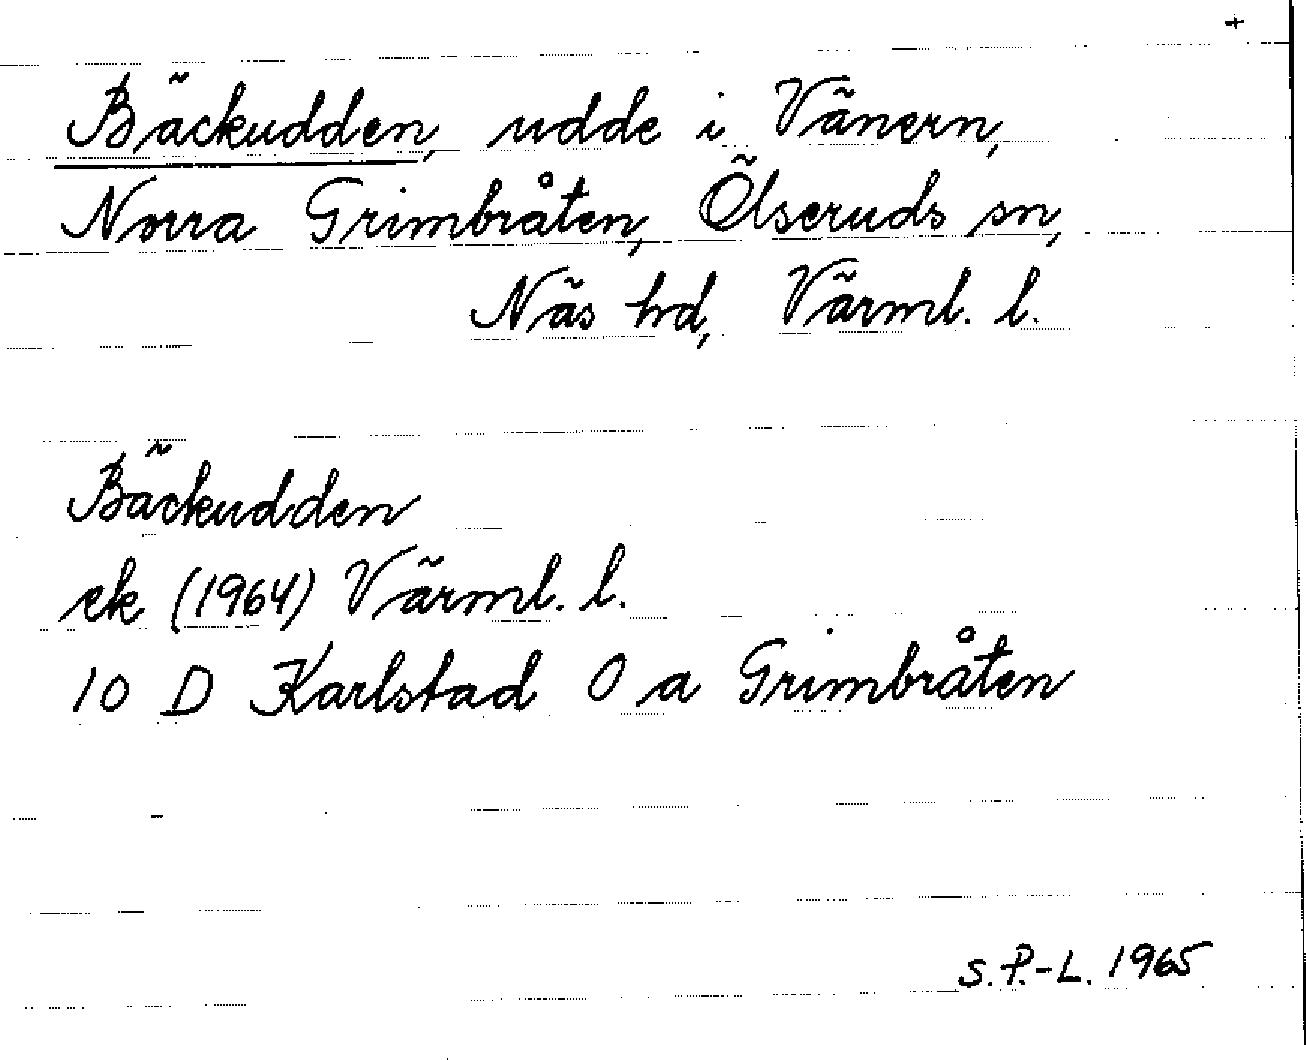 +
Bäckudden, udde i Vänern,
Norra Grimbråten, Ölseruds sn,
Näs hd, Värml. l.
Bäckudden
ek (1964) Värml. l.
10 D Karlstad 0 a Grimbråten
S.P.-L. 1965